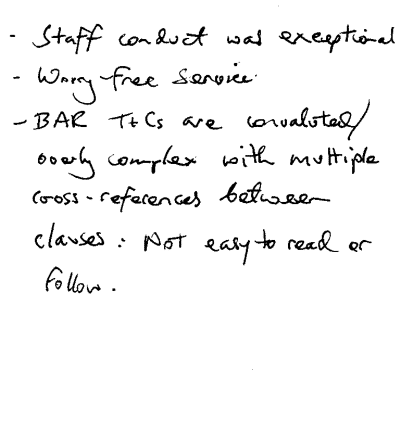 - Staff conduct was exceptional
- Worry free service.
- BAR T+Cs are convaluted/
overly complex with multiple
cross-references between
clauses : Not easy to read or
follow.